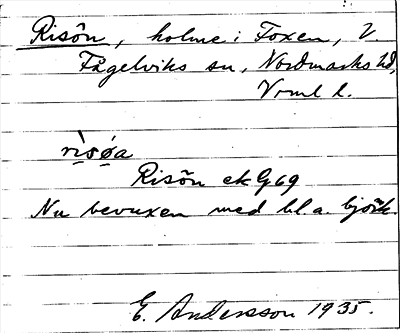 Risön, holme i Foxen, V.
Fågelviks sn, Nordmarks hd,
Vrml l.
rìsøa
Risön ek G 69
Nu bevuxen med bl.a. björk.
E. Andersson 1935.